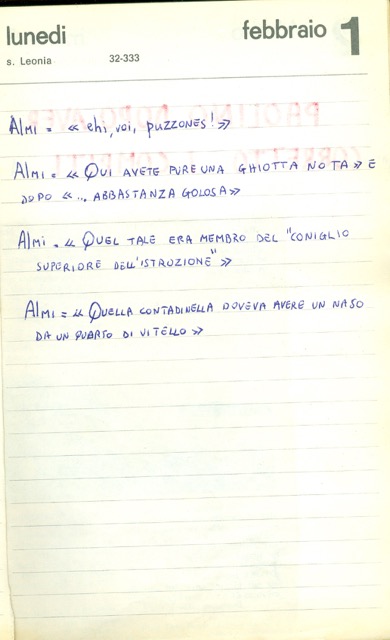 lunedi febbraio 1
s. Leonia 32-333
Almi = « ehi, voi, puzzones! »
Almi = « Qui avete pure una ghiotta nota » e
dopo « ... abbastanza golosa »
Almi = « Quel tale era membro del "coniglio
superiore dell'istruzione" »
Almi = « Quella contadinella doveva avere un naso
da un quarto di vitello »